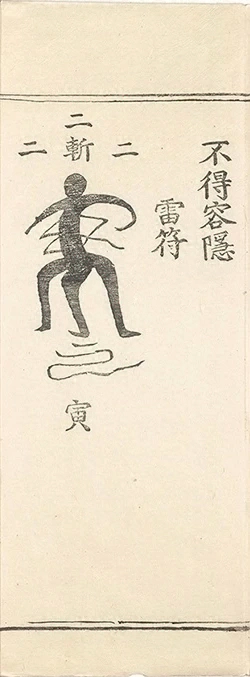 不得容隱
雷符
二
二 斬 二
寅